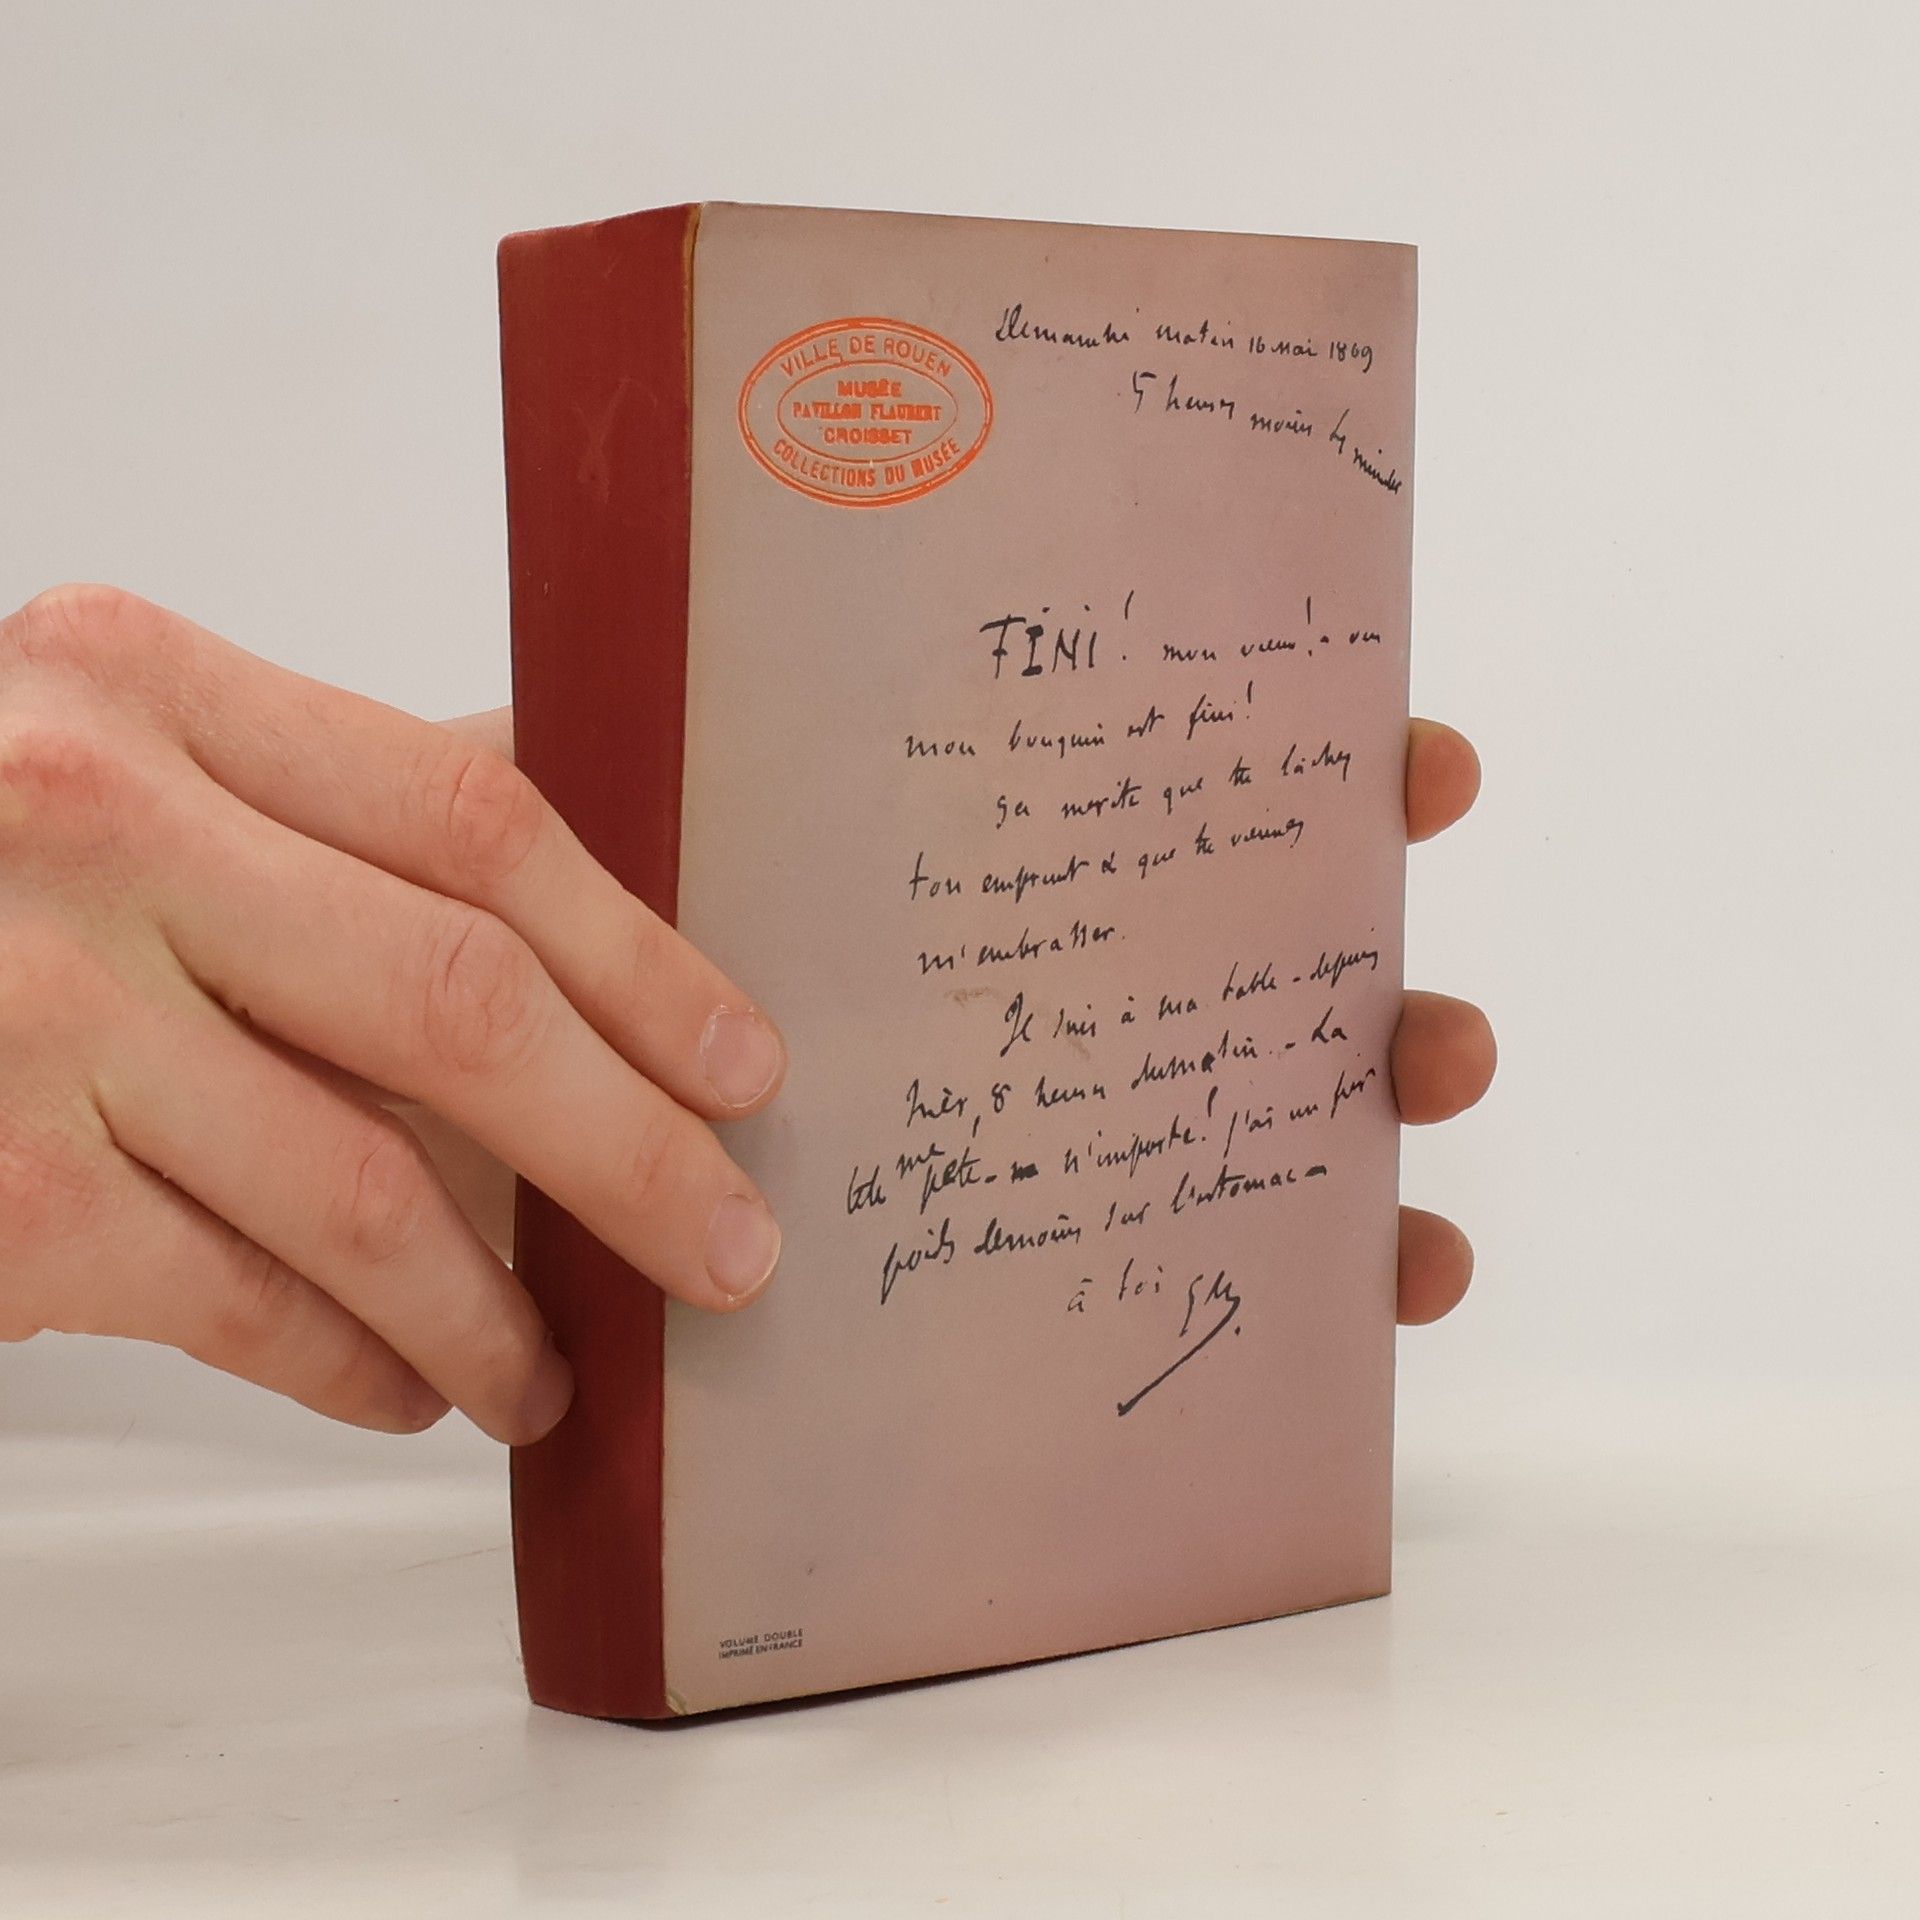 VILLE DE ROUEN
MUSÉE
PAVILLON FLAUBERT
CROISSET
COLLECTIONS DU MUSÉE
Dimanche matin 16 mai 1869
5 heures moins 4 minutes
FINI! mon vieux! - oui
mon bouquin est fini!
ça mérite que tu lâches
ton emprunt & que tu viennes
m'embrasser.
Je suis à ma table - depuis
hier, 8 heures du matin. - La
tête me pète - n'importe! j'ai un fier
poids de moins sur l'estomac -
à toi
VOLUME DOUBLE
IMPRIMÉ EN FRANCE